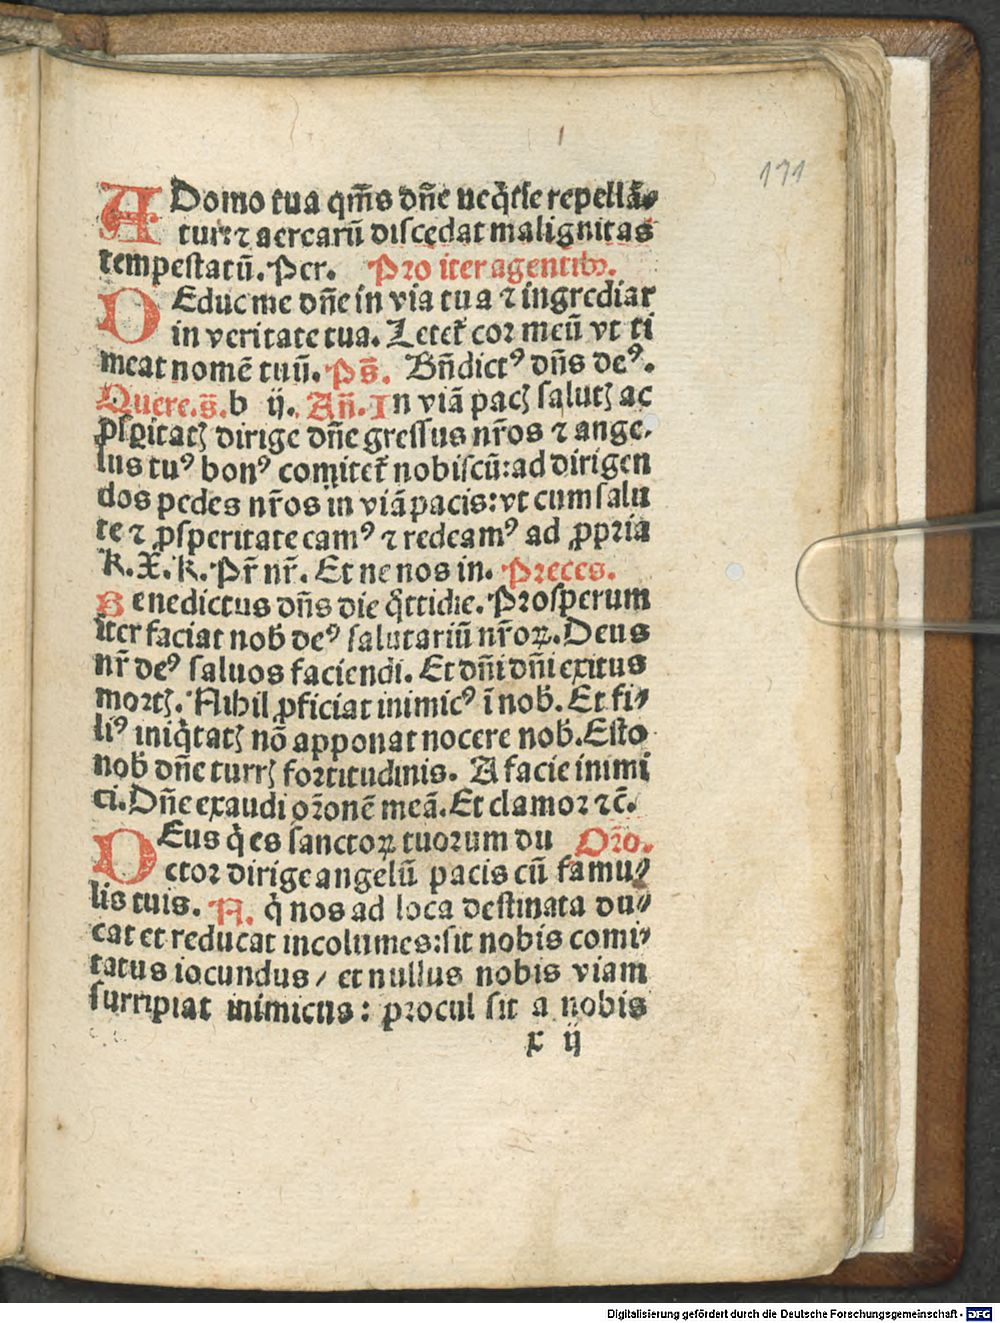 171
ADomo tua qm̄s dn̄e neq̄tie repellā⸗
tur: ⁊ aercarū discedat malignitas
tempestatū. Per. Pro iter agentibꝰ.
DEduc me dn̄e in via tua ⁊ ingrediar
in veritate tua. Letet̄ cor meū vt ti
meat nomē tuū. Ps̄. Bn̄dictꝰ dn̄s deꝰ.
Quere.s̄.b ij. An̄. In viā pacꝭ salutꝭ ac
ꝓsꝑitatꝭ dirige dn̄e gressus nr̄os ⁊ ange⸗
lus tuꝰ bonꝰ comitet̄ nobiscū: ad dirigen
dos pedes nr̄os in viā pacis: vt cum salu
te ⁊ ꝓsperitate eamꝰ ⁊ redeamꝰ ad ꝓpria
K. X. K. Pr̄ nr̄. Et ne nos in. Preces.
Benedictus dn̄s die q̄ttidie. Prosperum
iter faciat nob̄ deꝰ salutariū nr̄oꝝ. Deus
nr̄ deꝰ saluos faciendi. Et dn̄i dn̄i exitus
mortꝭ. Nihil ꝓficiat inimicꝰ ī nob̄. Et fi⸗
liꝰ iniq̄tatꝭ nō apponat nocere nob̄. Esto
nob̄ dn̄e turrꝭ fortitudinis. A facie inimi
ci. Dn̄e exaudi or̄onē meā. Et clamor ⁊c̄.
DEus q̄ es sanctoꝝ tuorum du Or̄o.
ctor dirige angelū pacis cū famu⸗
lis tuis. A. q̄ nos ad loca destinata du⸗
cat et reducat incolumes: sit nobis comi⸗
tatus iocundus / et nullus nobis viam
surripiat inimicus: procul sit a nobis
x ij
Digitalisierung gefördert durch die Deutsche Forschungsgemeinschaft - DFG